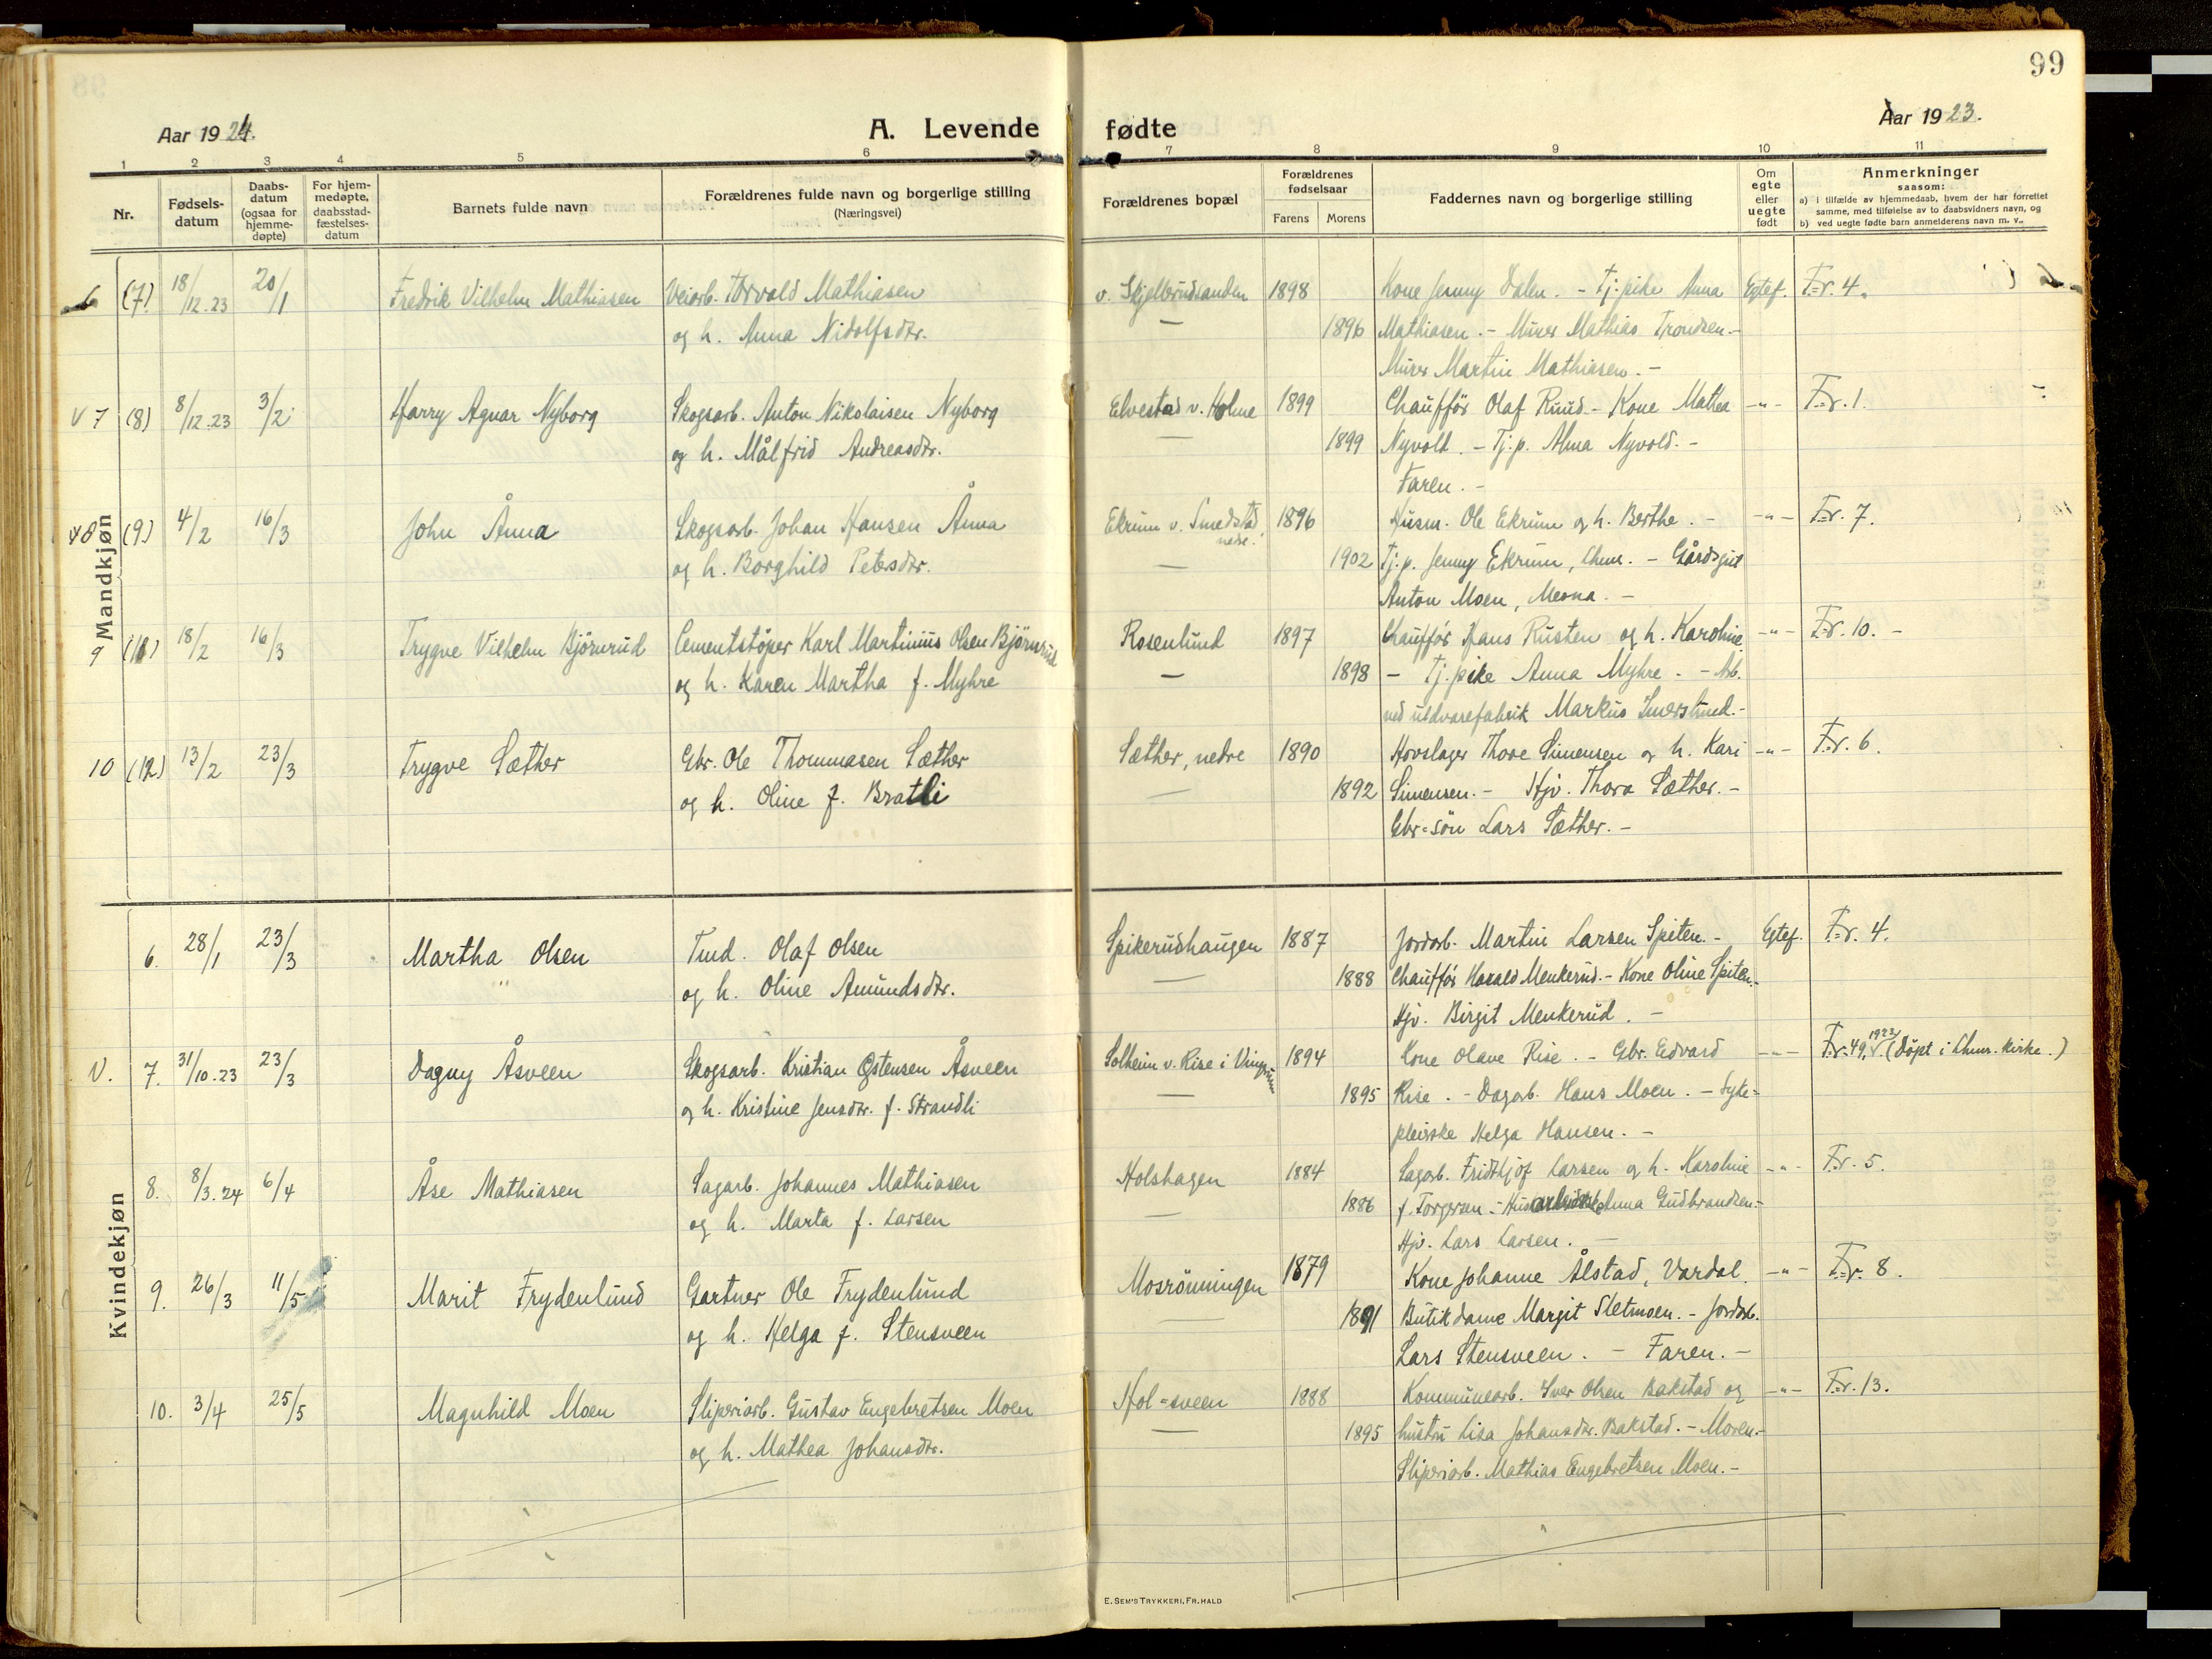 99
Aar 1924.
A. Levende fødte
Aar 1923.
1 2 3 4 5 6 7 8 9 10 11
Nr.
Fødsels-
datum
Daabs-
datum
(ogsaa for
hjemme-
døpte)
For hjem-
medøpte,
daabsstad-
fæstelses-
datum
Barnets fulde navn
Forældrenes fulde navn og borgerlige stilling
(Næringsvei)
Forældrenes bopæl
Forældrenes
fødselsaar
Farens Morens
Faddernes navn og borgerlige stilling
Om
egte
eller
uegte
født
Anmerkninger
saasom:
a) i tilfælde av hjemmedaab, hvem der har forrettet
samme, med tilføielse av to daabsvidners navn, og
b) ved uegte fødte barn anmelderens navn m. v.
Mandkjøn
6 (7) 18/12.23 20/1 Fredrik Vilhelm Mathiasen Veiarb. Torvald Mathiasen v. Skjelbrudsanden 1898 Kone Jenny Dalen. - Tj.pike Anna Egtef. F.r. 4.
og h. Anna Nidolfsdtr. — 1896 Mathiasen. - Murer Mathias Trondsen. -
Murer Martin Mathiasen. -
V 7 (8) 8/12.23 3/2 Harry Agnar Nyborg Skogsarb. Anton Nikolaisen Nyborg Elvestad v. Holme 1899 Chauffør Olaf Ruud - Kone Mathea -"- F.r. 1.
og h. Målfrid Andreasdtr. — 1899 Nyvold. - Tj.p. Alma Nyvold. -
Faren. -
8 (9) 4/2 16/3 John Ånna Skogsarb. Johan Hansen Ånna Ekrum v. Smedstad 1896 Husm. Ole Ekrum og h. Berthe. - -"- F.r. 7.
nedre.
og h. Borghild Petersdtr. — 1902 Tj.p. Jenny Ekrum, Lhmr. - Gårdsgut
Anton Moen, Mesna. -
9 (11) 18/2 16/3 Trygve Vilhelm Bjørnrud Cementstøper Karl Martinius Olsen Bjørnrud Rosenlund 1897 Chauffør Hans Rusten og h. Karoline -"- F.r. 10. -
og h. Karen Martha f. Myhre — 1898 - Tj.pike Anna Myhre. - Arb.
ved uldvarefabrik Markus -
10 (12) 13/2 23/3 Trygve Sæther Gbr. Ole Thommasen Sæther Sæther, nedre 1890 Hovslager Thore Simensen og h. Kari -"- F.r. 6.
og h. Oline f. Bratli — 1892 Simensen. - Hjv. Thora Sæther. -
Gbr=søn Lars Sæther. -
Kvindekjøn
6. 28/1 23/3 Martha Olsen Tmd. Olaf Olsen Spikerudhaugen 1887 Jordarb. Martin Larsen Spiten. - Egtef. F.r. 4.
og h. Oline Amundsdtr. — 1888 Chauffør Harald Menkerud. - Kone Oline Spiten. -
Hjv. Birgit Menkerud. -
V. 7. 31/10.23 23/3 Dagny Åsveen Skogsarb. Kristian Østensen Åsveen Solheim v. Rise i Vingrum 1894 Kone Olave Rise. - Gbr. Edvard -"- F.r. 49. 1923 (Døpt i Lhmr. kirke.)
og h. Kristine Jensdtr. f. Strandli — 1895 Rise. - Dagarb. Hans Moen. - Syke-
pleierske Helga Hansen. -
8. 8/3.24 6/4 Åse Mathiasen Sagarb. Johannes Mathiasen Holshagen 1884 Sagarb. Fridthjof Larsen og h. Karoline -"- F.r. 5.
og h. Marta f. Larsen — 1886 f. Torgersen. - Anna Gudbrandsen. -
Hjv. Lars Larsen. -
9. 26/3 11/5 Marit Frydenlund Gartner Ole Frydenlund Mosrønningen 1879 Kone Johanne Ålstad, Vardal. -"- F.r. 8.
og h. Helga f. Stensveen — 1891 Butikdame Margit Sletmoen. - Jordarb.
Lars Stensveen. - Faren. -
10. 3/4 25/5 Magnhild Moen Sliperiarb. Gustav Engebretsen Moen Hol=sveen 1888 Kommunearb. Iver Olsen Bakstad og -"- F.r. 13.
og h. Mathea Johansdtr. — 1895 hustru Lisa Johansdtr. Bakstad. - Moren. -
Sliperiarb. Mathias Engebretsen Moen. -
E. SEM'S TRYKKERI, FR.HALD